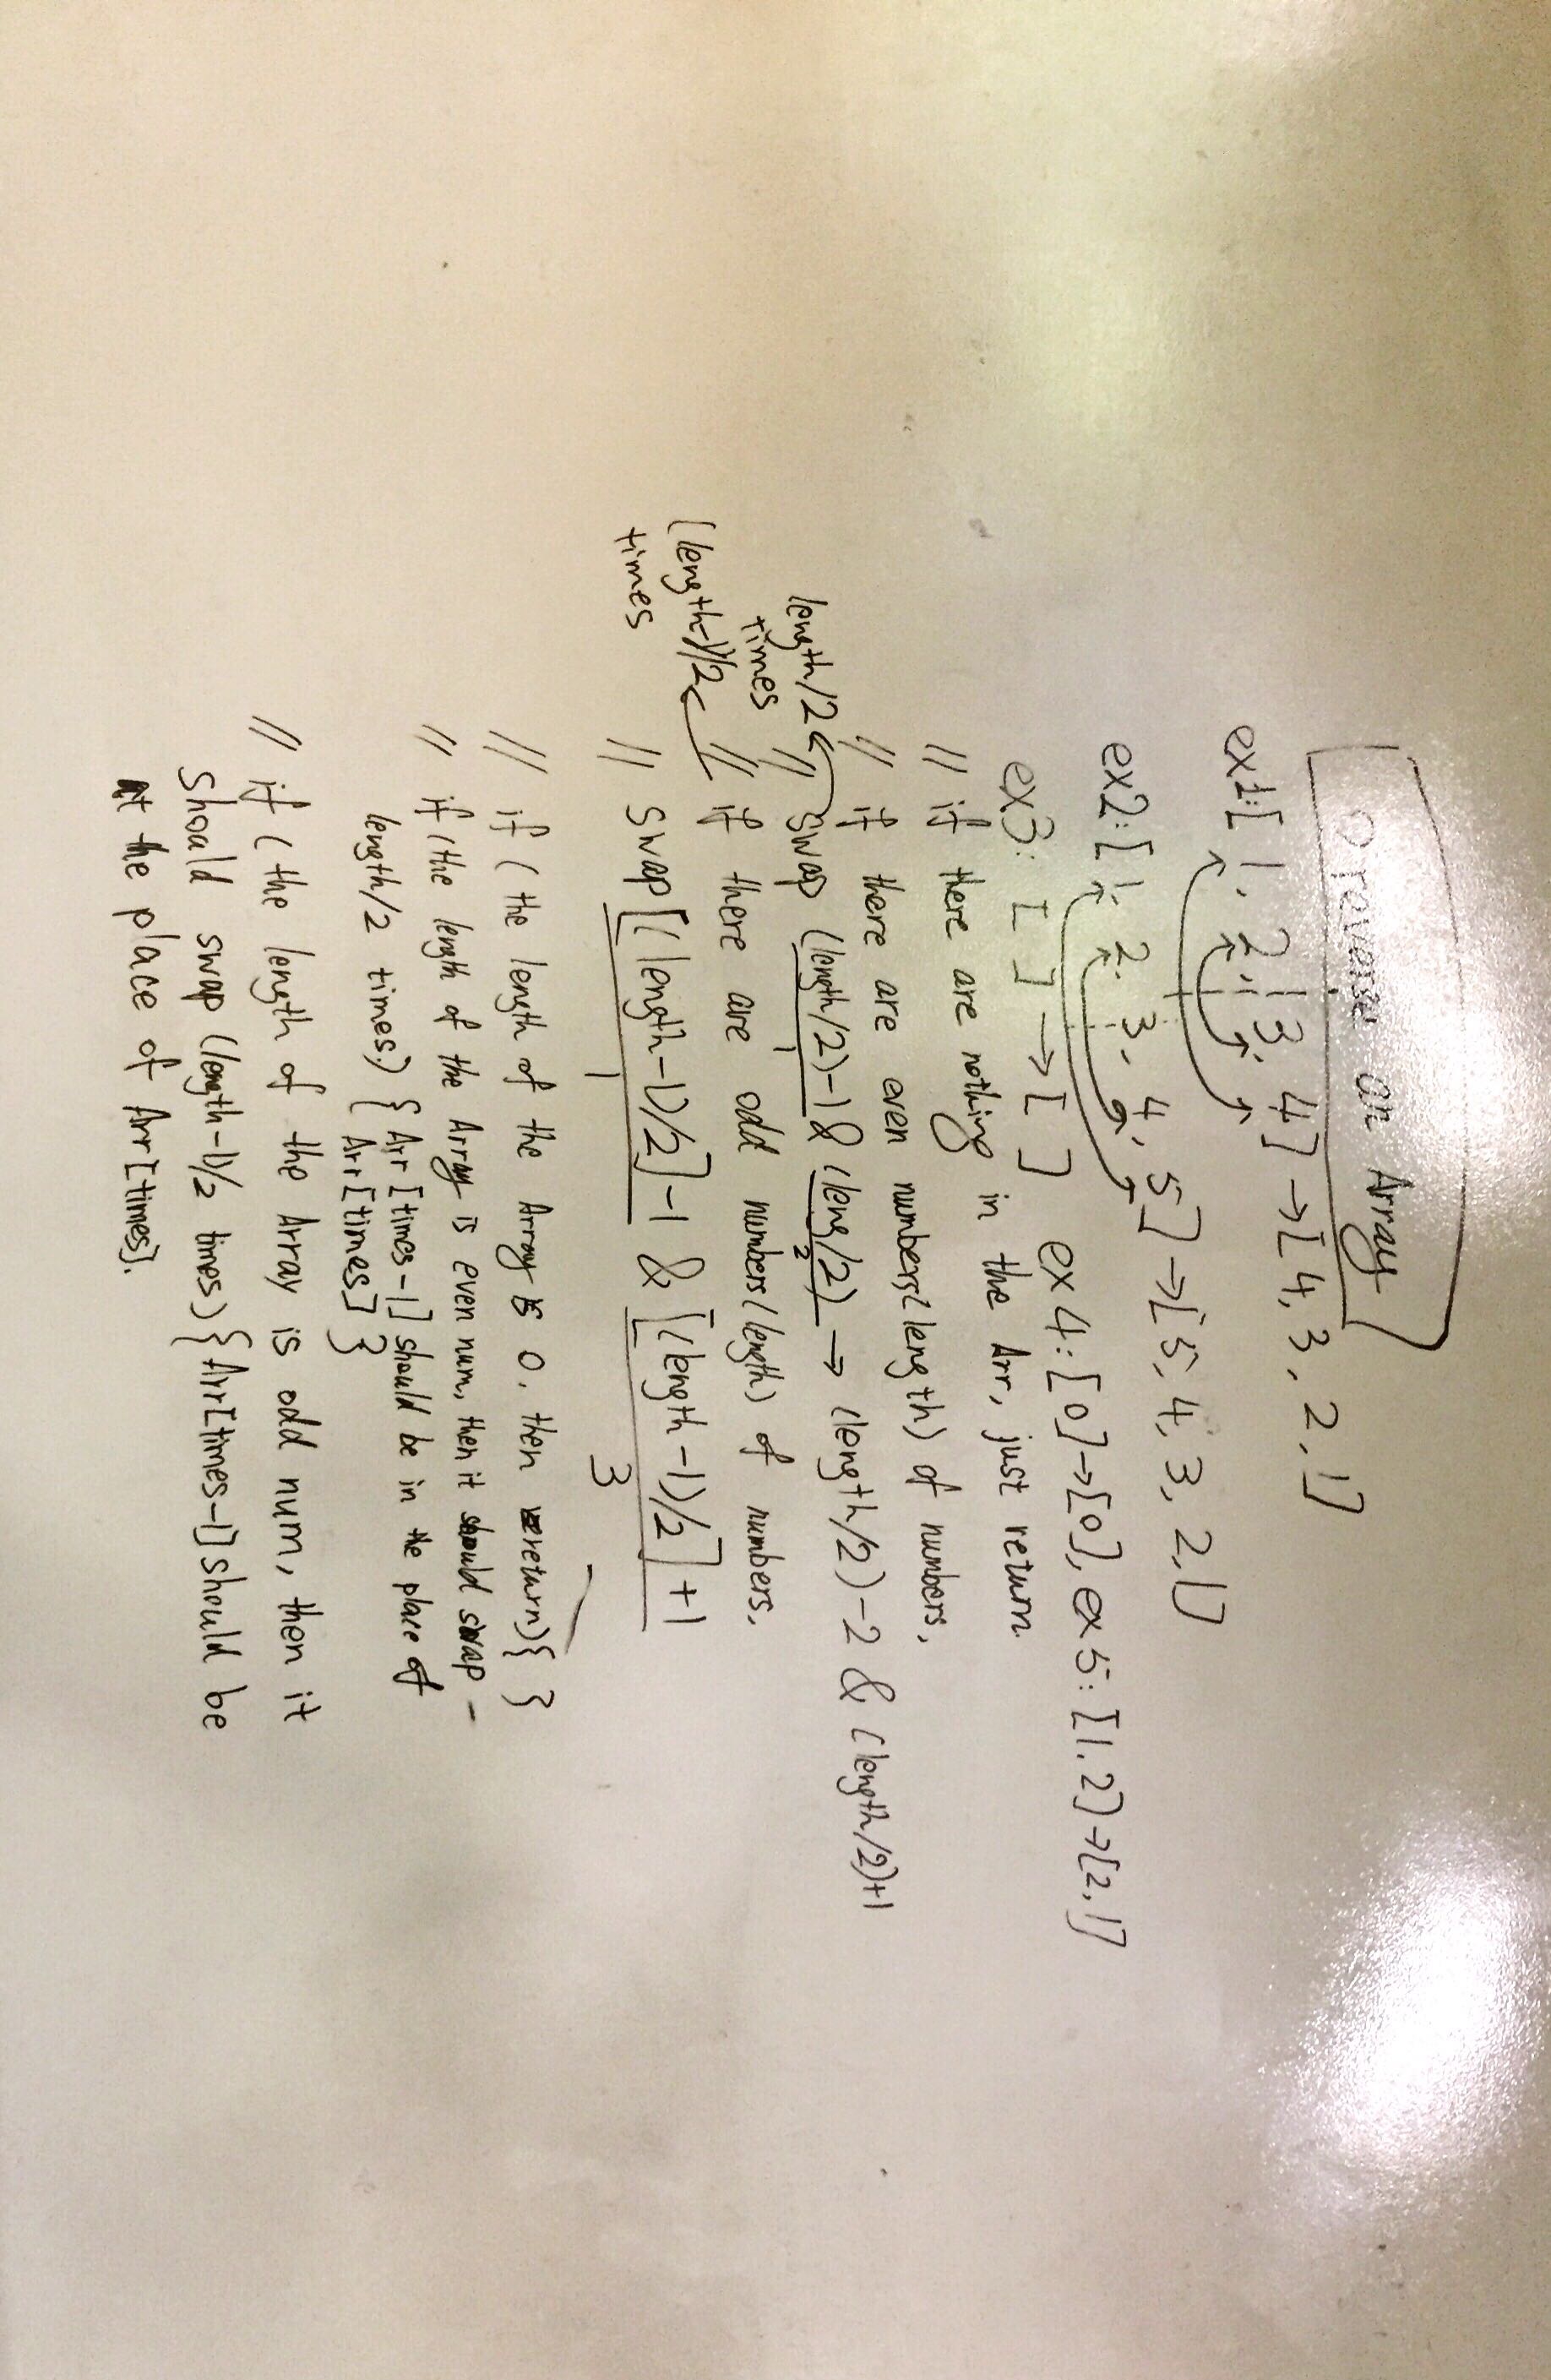 ① reverse an Array
ex1: [1, 2, 3, 4] → [4, 3, 2, 1]
ex2: [1, 2, 3, 4, 5] → [5, 4, 3, 2, 1]
ex3: [ ] → [ ] ex4: [0] → [0], ex5: [1, 2] → [2, 1]
// if there are nothing in the Arr, just return.
// if there are even numbers(length) of numbers,
length/2 times
// swap (length/2)-1 & (leng/2) → (length/2)-2 & (length/2)+1
1 2
// if there are odd numbers(length) of numbers,
(length-1)/2 times
// swap [(length-1)/2]-1 & [(length-1)/2]+1
1 3
// if (the length of the Array is 0, then return) { }
// if (the length of the Array is even num, then it should swap -
length/2 times) { Arr[times-1] should be in the place of
Arr[times] }
// if (the length of the Array is odd num, then it
should swap (length-1)/2 times) { Arr[times-1] should be
at the place of Arr[times].